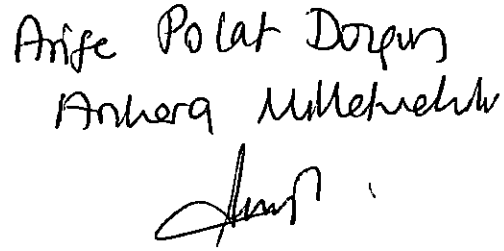 Arife Polat Düzgün
Ankara Milletvekili